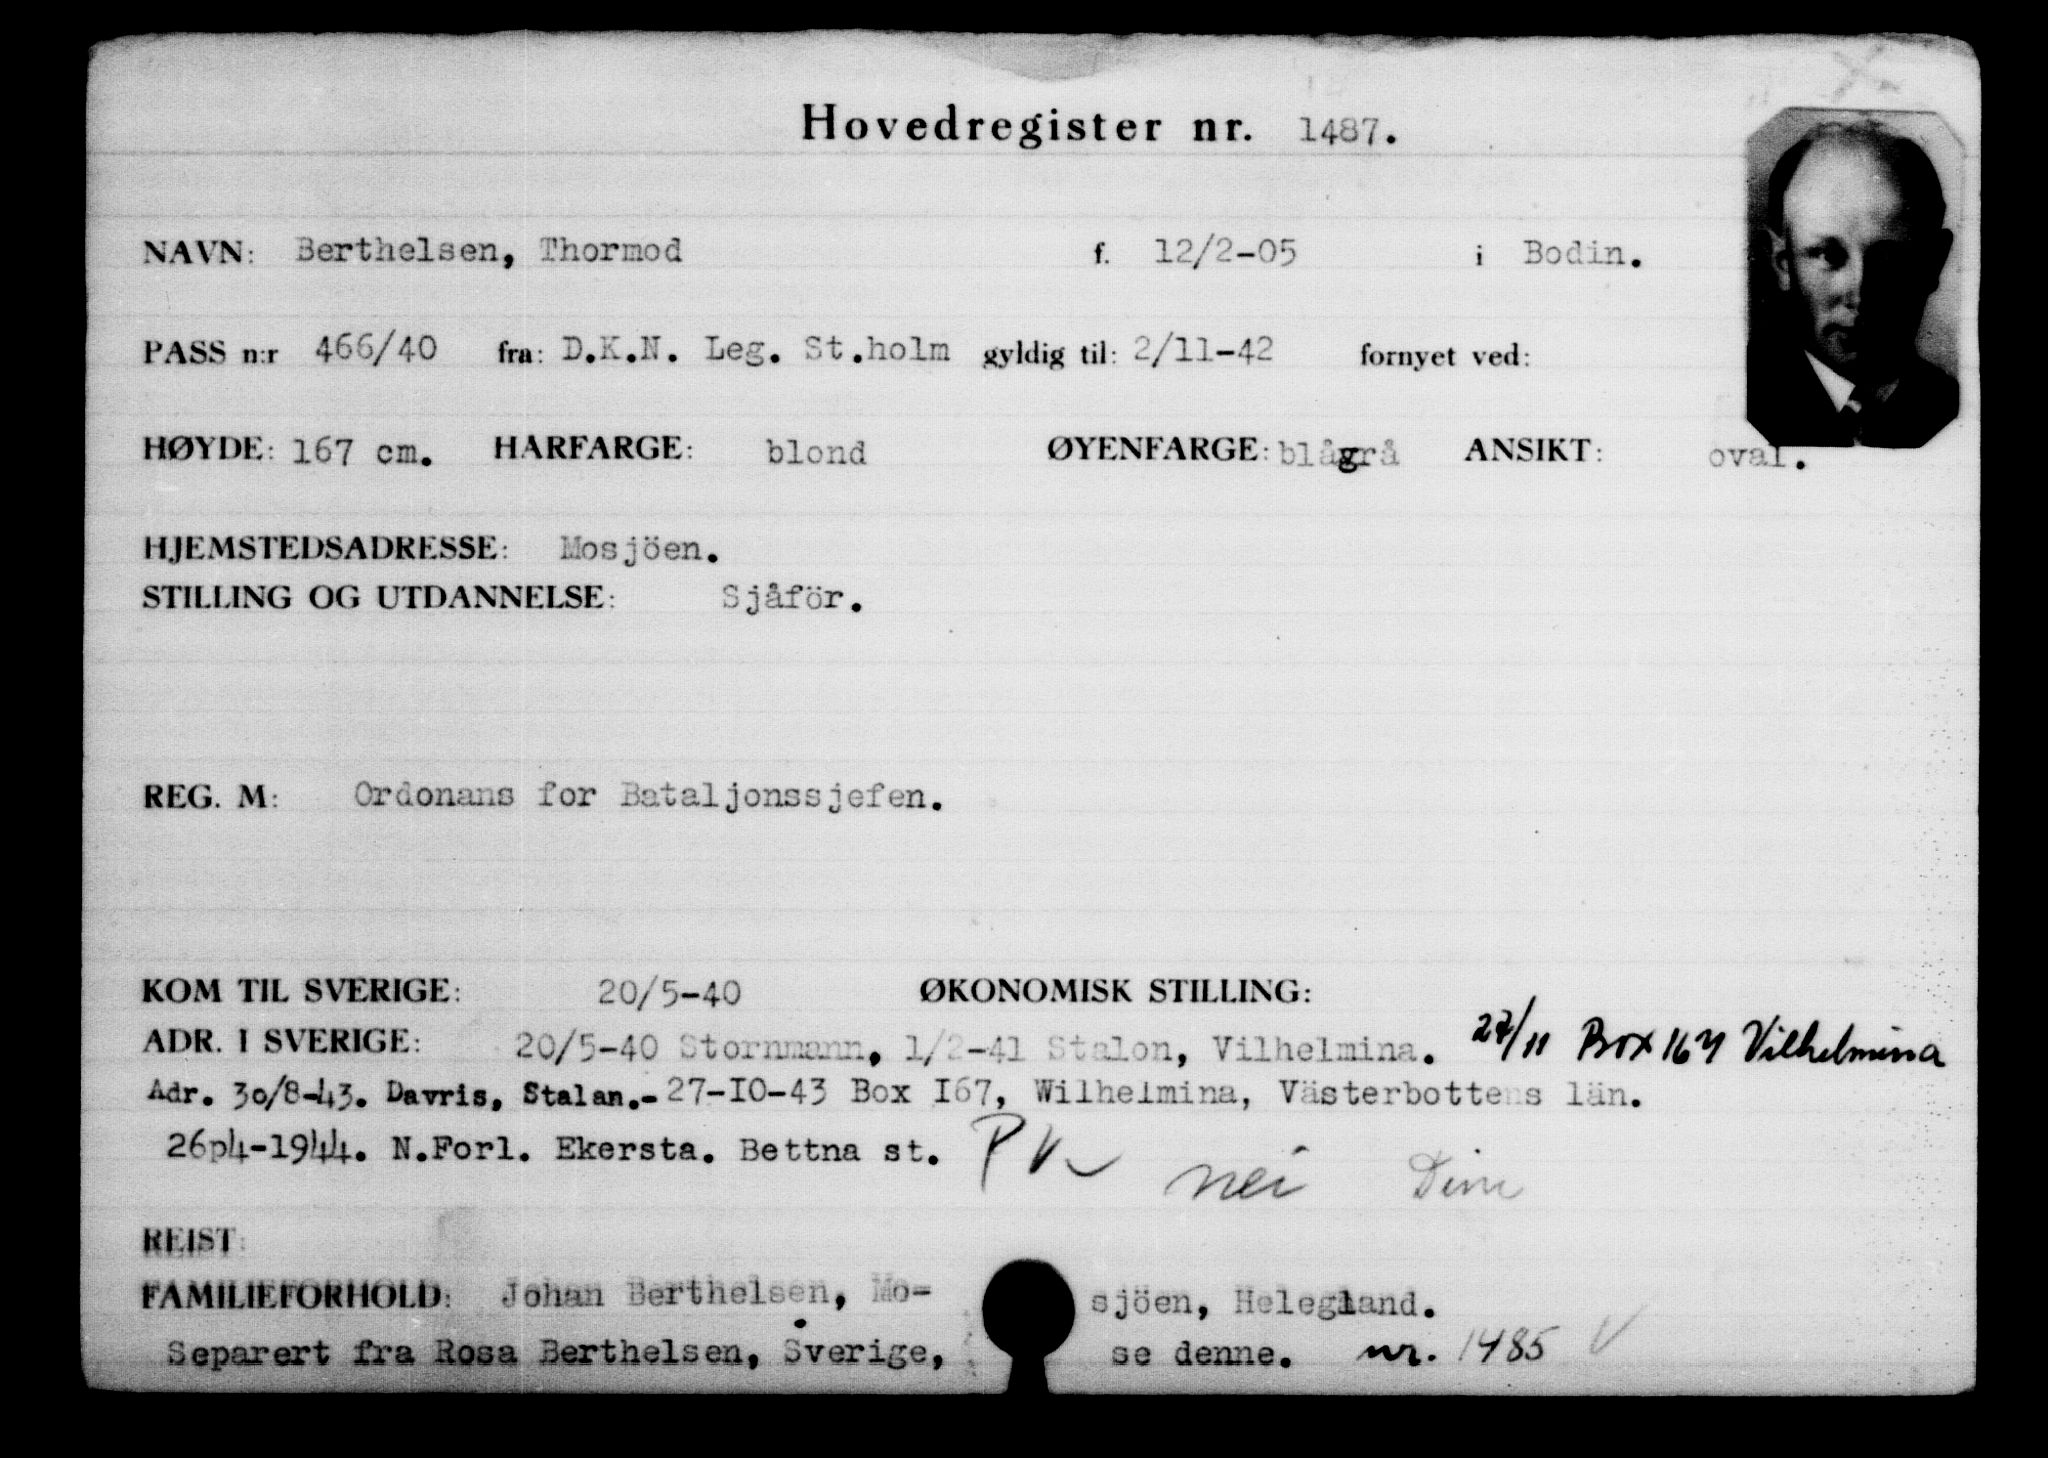 Hovedregister nr. 1487.
NAVN: Berthelsen, Thormod f. 12/2-05 i Bodin.
PASS n:r 466/40 fra: D.K.N. Leg. St.holm gyldig til: 2/11-42 fornyet ved:
HØYDE: 167 cm. HARFARGE: blond ØYENFARGE: blågrå ANSIKT: oval.
HJEMSTEDSADRESSE: Mosjöen.
STILLING OG UTDANNELSE: Sjåför.
REG. M: Ordonans for Bataljonssjefen.
KOM TIL SVERIGE: 20/5-40 ØKONOMISK STILLING:
ADR. I SVERIGE: 20/5-40 Stornmann, 1/2-41 Stalon, Vilhelmina. 27/11 Box 167 Vilhelmina
Adr. 30/8-43. Davris, Stalan.- 27-10-43 Box 167, Wilhelmina, Västerbottens län.
26p4-1944. N.Forl. Ekersta. Bettna st. PV nei
REIST:
FAMILIEFORHOLD: Johan Berthelsen, Mo- sjöen, Helegland.
Separert fra Rosa Berthelsen, Sverige, se denne. nr. 1485 V